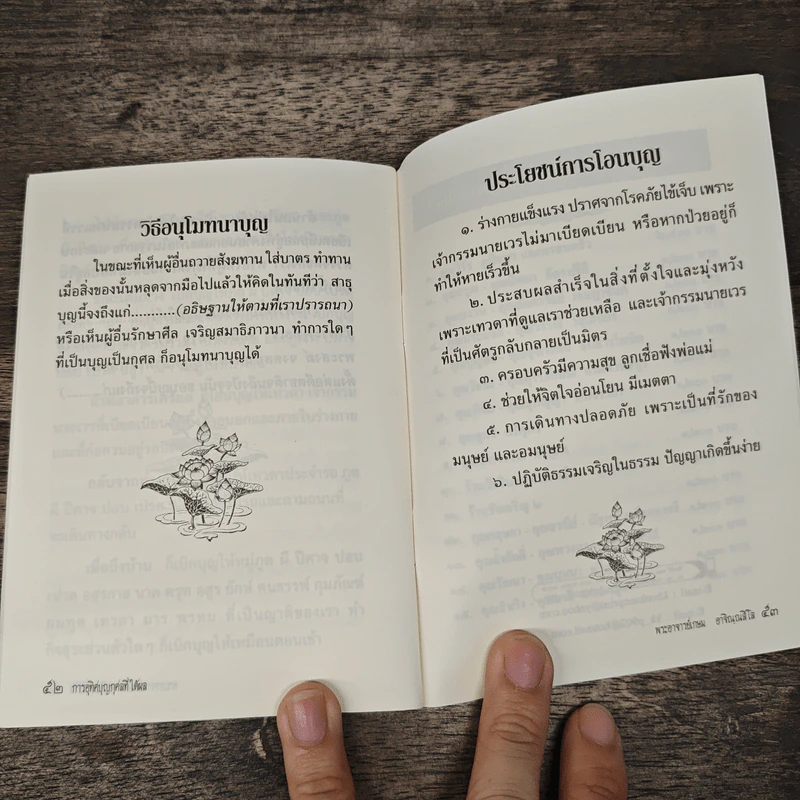 วิธีอนุโมทนาบุญ
ในขณะที่เห็นผู้อื่นถวายสังฆทาน ใส่บาตร ทำทาน
เมื่อสิ่งของนั้นหลุดจากมือไปแล้วให้คิดในทันทีว่า สาธุ
บุญนี้จงถึงแก่...........(อธิษฐานให้ตามที่เราปรารถนา)
หรือเห็นผู้อื่นรักษาศีล เจริญสมาธิภาวนา ทำการใดๆ
ที่เป็นบุญเป็นกุศล ก็อนุโมทนาบุญได้
๕๒ การอุทิศบุญกุศลที่ได้ผล
ประโยชน์การโอนบุญ
๑. ร่างกายแข็งแรง ปราศจากโรคภัยไข้เจ็บ เพราะ
เจ้ากรรมนายเวรไม่มาเบียดเบียน หรือหากป่วยอยู่ก็
ทำให้หายเร็วขึ้น
๒. ประสบผลสำเร็จในสิ่งที่ตั้งใจและมุ่งหวัง
เพราะเทวดาที่ดูแลเราช่วยเหลือ และเจ้ากรรมนายเวร
ที่เป็นศัตรูกลับกลายเป็นมิตร
๓. ครอบครัวมีความสุข ลูกเชื่อฟังพ่อแม่
๔. ช่วยให้จิตใจอ่อนโยน มีเมตตา
๕. การเดินทางปลอดภัย เพราะเป็นที่รักของ
มนุษย์ และอมนุษย์
๖. ปฏิบัติธรรมเจริญในธรรม ปัญญาเกิดขึ้นง่าย
พระอาจารย์เกษม อาจิณฺณสีโล ๕๓